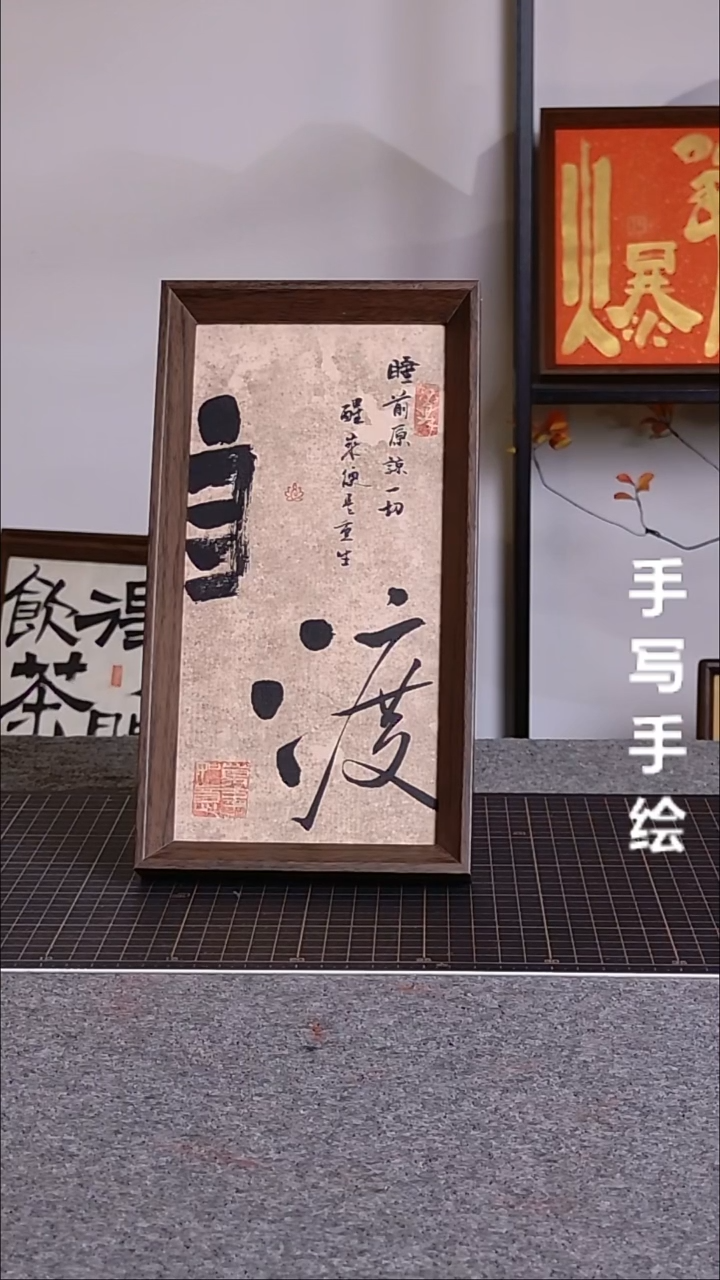 自渡
睡前原諒一切
醒来便是重生
手写手绘
爆
飲
茶